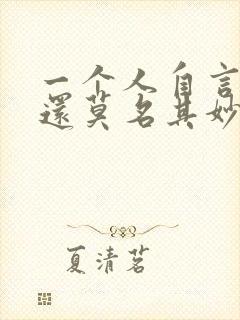 一个人自言
還莫名其妙
夏清茗